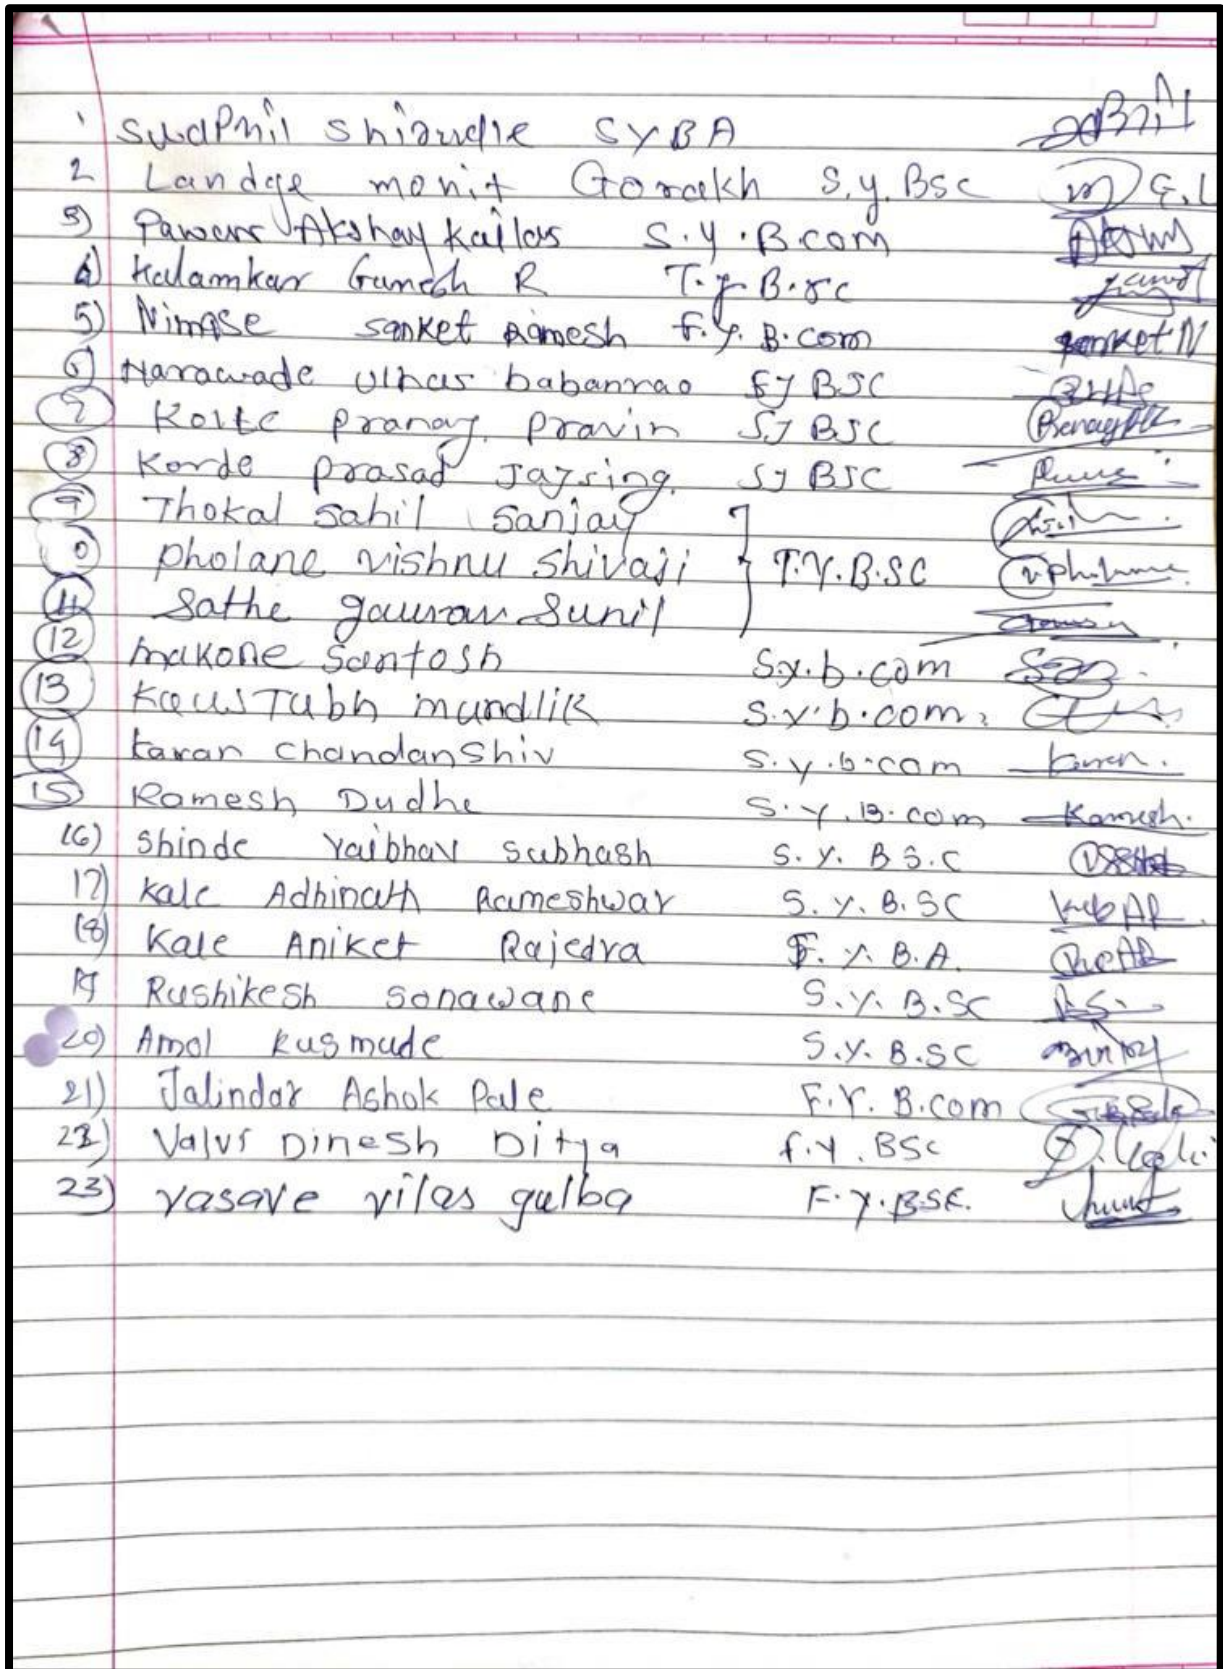 1 Swapnil Shirudle SYBA
2 Landge monit Gorakh S.y.Bsc m G.L
3) Pawar Akshay Kailas S.y.B.com
4) Kalamkar Ganesh R T.y.B.sc
5) Nimase sanket Ramesh f.y.B.com sanket N
6) Narawade Ulhas babanrao SyBSC
7 Kolte Pranay Pravin SYBSC
8 Korde prasad Jaysing. SYBSC
9 Thokal Sahil Sanjay
0 pholane vishnu Shivaji } T.Y.B.SC
11 Sathe gaurav Sunil
12 makone Santosh S.y.b.com
13 KausTubh mundlik S.y.b.com
14 karan chandanshiv S.y.b.com karan.
15 Ramesh Dudhe S.y.B.com Ramesh.
16) Shinde Vaibhav Subhash S.Y.BS.C
17) kale Adhinath Rameshwar S.Y.B.SC
18) Kale Aniket Rajedra F.Y.B.A.
19 Rushikesh sonawane S.Y.B.SC
20) Amol kusmude S.Y.B.SC
21) Jalindar Ashok Pale F.Y.B.com
22) Valvi Dinesh Ditya f.y.BSc
23) vasave vilas gulba F.y.BSC.